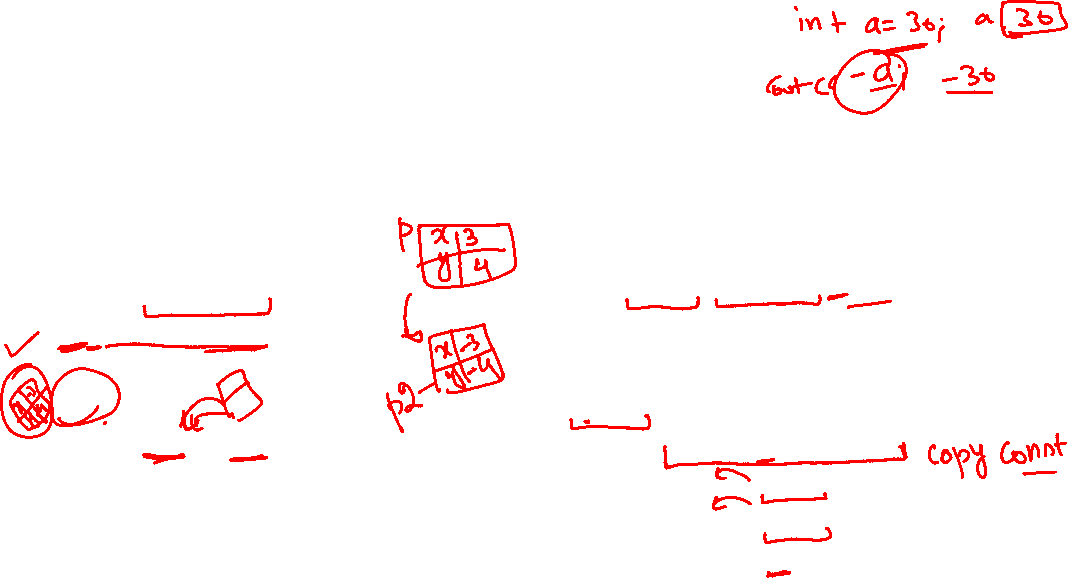 int a=30; a 30
cout<< -a; -30
p x 3
y 4
x -3
p2 y -4
copy const